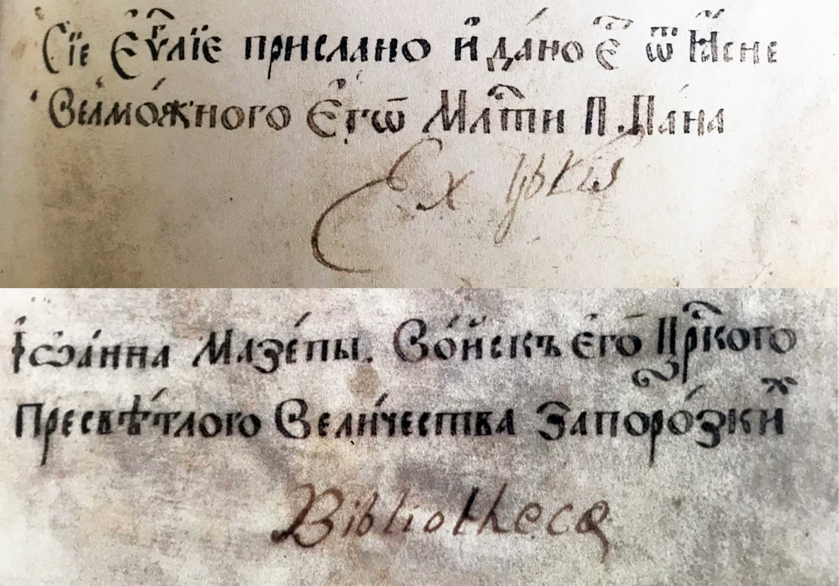 Сїе Єѵ҃лїе прислано и҆ да́но є҆ ѿ Ꙗ҆сне
Велмо́жного Єгѡ̀ Мл҃ти П. Па́на
Ex
Іѡа́нна Мазе́пы. Во́йскъ є҆го̀ Цр҃кого
Пресвѣ́тлого Вели́чества Запоро́зкихъ
Bibliotheca